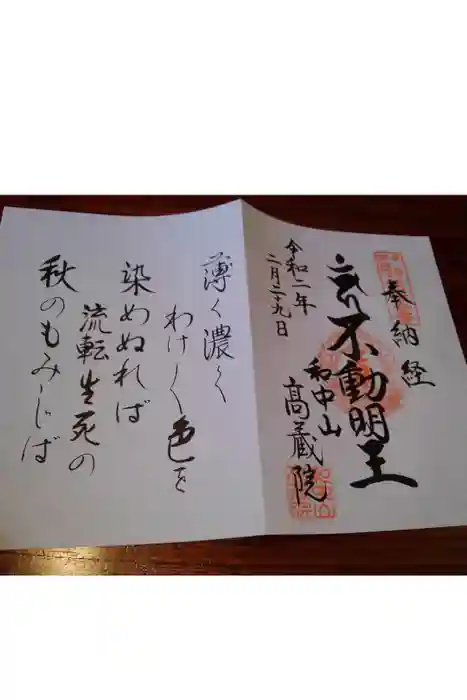 奉納経
不動明王
和中山
高蔵院
令和二年
二月二十九日
薄く濃く
わけ〳〵く色を
染めぬれば
流転生死の
秋のもみぢば